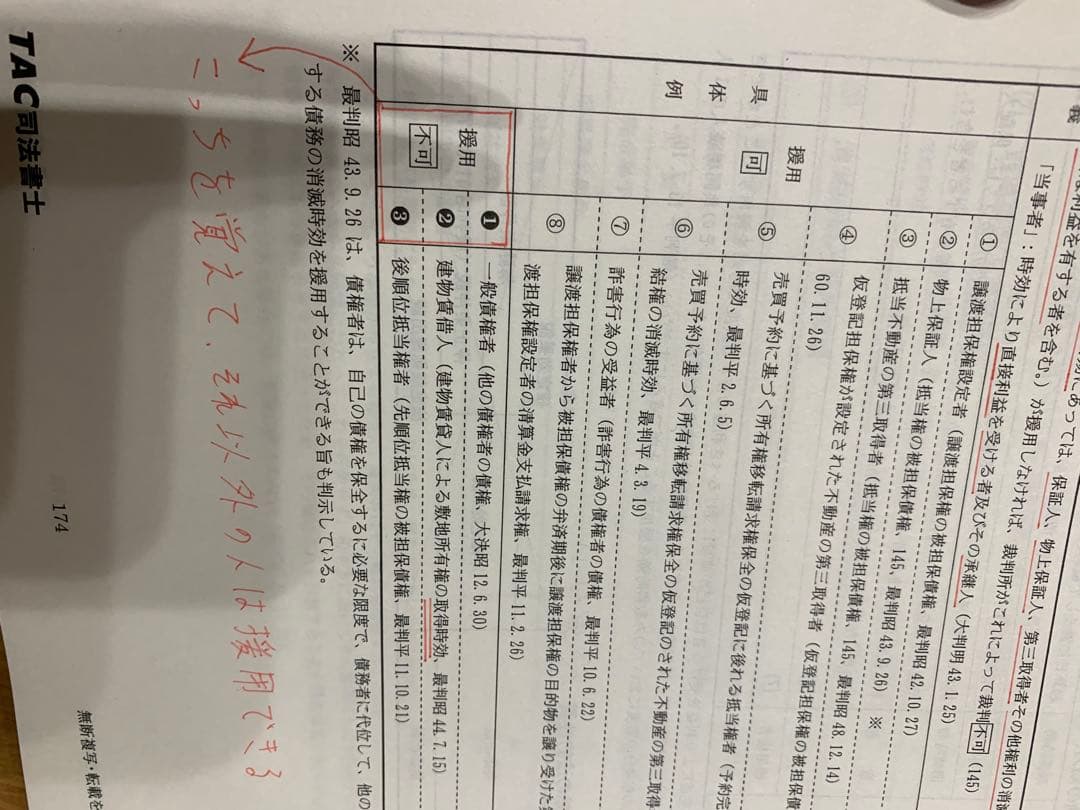 義
利益を有する者を含む。）が援用しなければ、裁判所がこれによって裁判不可（145）
っては、保証人、物上保証人、第三取得者その他権利の消滅
「当事者」：時効により直接利益を受ける者及びその承継人（大判明 43.1.25）
具体例
援用
可
① 譲渡担保権設定者（譲渡担保権の被担保債権、最判昭 42.10.27）
② 物上保証人（抵当権の被担保債権、
③ 抵当不動産の第三取得者（抵当権の被担保債権、145、最判昭 43.9.26） ※
④ 仮登記担保権が設定された不動産の第三取得者（仮登記担保権の被担保債
権、145、最判昭 48.12.14）
60.11.26）
⑤ 売買予約に基づく所有権移転請求権保全の仮登記に後れる抵当権者（予約完
時効、最判平 2.6.5）
⑥ 売買予約に基づく所有権移転請求権保全の仮登記のされた不動産の第三取得
結権の消滅時効、最判平 4.3.19）
⑦ 詐害行為の受益者（詐害行為の債権者の債権、最判平 10.6.22）
⑧ 譲渡担保権者から被担保債権の弁済期後に譲渡担保権の目的物を譲り受けた
渡担保権設定者の清算金支払請求権、最判平 11.2.26）
援用
不可
❶ 一般債権者（他の債権者の債権、大決昭 12.6.30）
❷ 建物賃借人（建物賃貸人による敷地所有権の取得時効、最判昭 44.7.15）
❸ 後順位抵当権者（先順位抵当権の被担保債権、最判平 11.10.21）
※ 最判昭 43.9.26 は、債権者は、自己の債権を保全するに必要な限度で、債務者に代位して、他の
する債務の消滅時効を援用することができる旨も判示している。
こっちを覚えて、それ以外の人は援用できる
TAC司法書士
174
無断複写・転載を